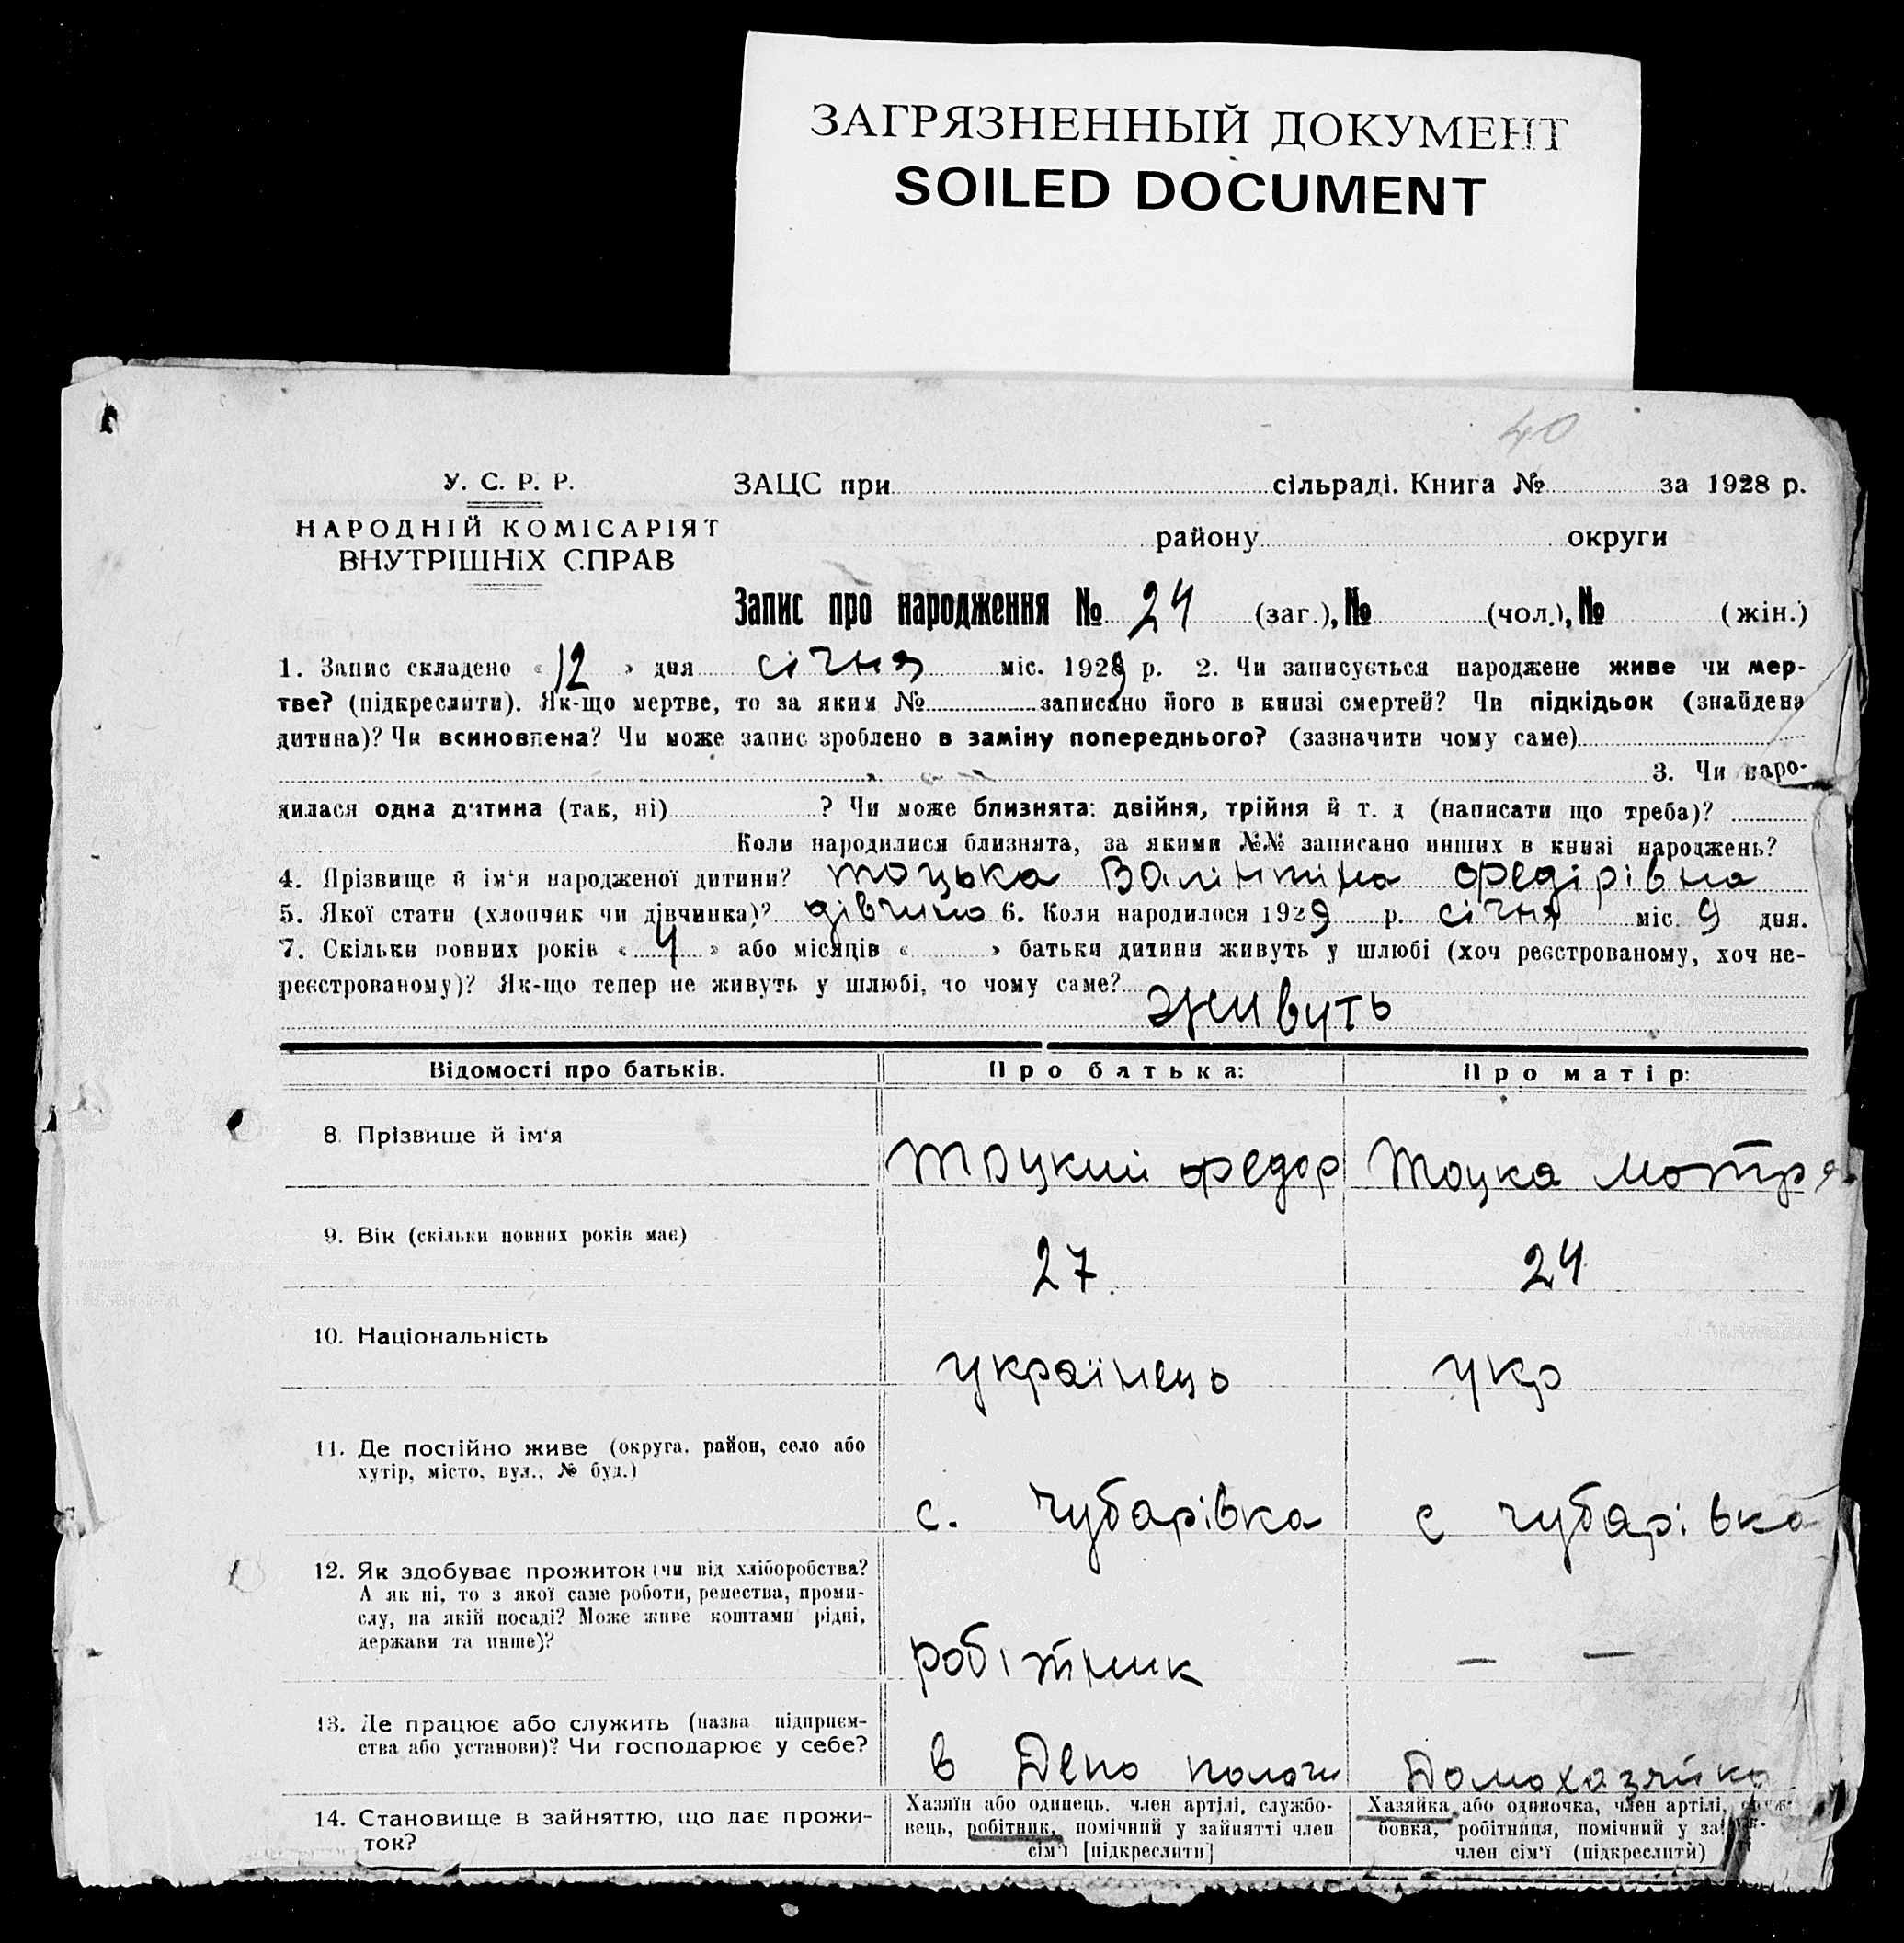 ЗАГРЯЗНЕННЫЙ ДОКУМЕНТ
SOILED DOCUMENT
40
У. С. Р. Р.
НАРОДНІЙ КОМІСАРІЯТ
ВНУТРІШНІХ СПРАВ
ЗАЦС при сільраді. Книга № за 1928 р.
району округи
Запис про народження № 24 (заг.), № (чол.), № (жін.)
1. Запис складено « 12 » дня січня міс. 1929 р. 2. Чи записується народжене живе чи мер-
тве? (підкреслити). Як-що мертве, то за яким № записано його в книзі смертей? Чи підкідьок (знайдена
дитина)? Чи всиновлена? Чи може запис зроблено в заміну попереднього? (зазначити чому саме)
3. Чи наро-
дилася одна дитина (так, ні) ? Чи може близнята: двійня, трійня й т. д (написати що треба)?
Коли народилися близнята, за якими №№ записано инших в книзі народжень?
4. Прізвище й ім'я народженої дитини? Тоцька Валінтіна Федірівна
5. Якої стати (хлопчик чи дівчинка)? дівчино 6. Коли народилося 1929 р. січня міс. 9 дня.
7. Скільки повних років « 4 » або місяців « » батьки дитини живуть у шлюбі (хоч реєстрованому, хоч не-
реєстрованому)? Як-що тепер не живуть у шлюбі, то чому саме?
живуть
Відомості про батьків. Про батька: Про матір:
8. Прізвище й ім'я Тоцкий Федор Тоцка Мотря
9. Вік (скільки повних років має) 27 24
10. Національність українець укр
11. Де постійно живе (округа, район, село або
хутір, місто, вул., № буд.)
с. Чубарівка с Чубарівка
12. Як здобуває прожиток (чи від хліборобства?
А як ні, то з якої саме роботи, ремества, проми-
слу, на якій посаді? Може живе коштами рідні,
держави та инше)?
робітник — —
13. Де працює або служить (назва підприєм-
ства або установи)? Чи господарює у себе?
в Депо пологи Домохазяйка
14. Становище в зайняттю, що дає прожи-
ток?
Хазяїн або одинець, член артілі, службо-
вець, робітник, помічний у зайнятті член
сім'ї [підкреслити]
Хазяйка або одиночка, член артілі, служ-
бовка, робітниця, помічний у
член сім'ї (підкреслити)